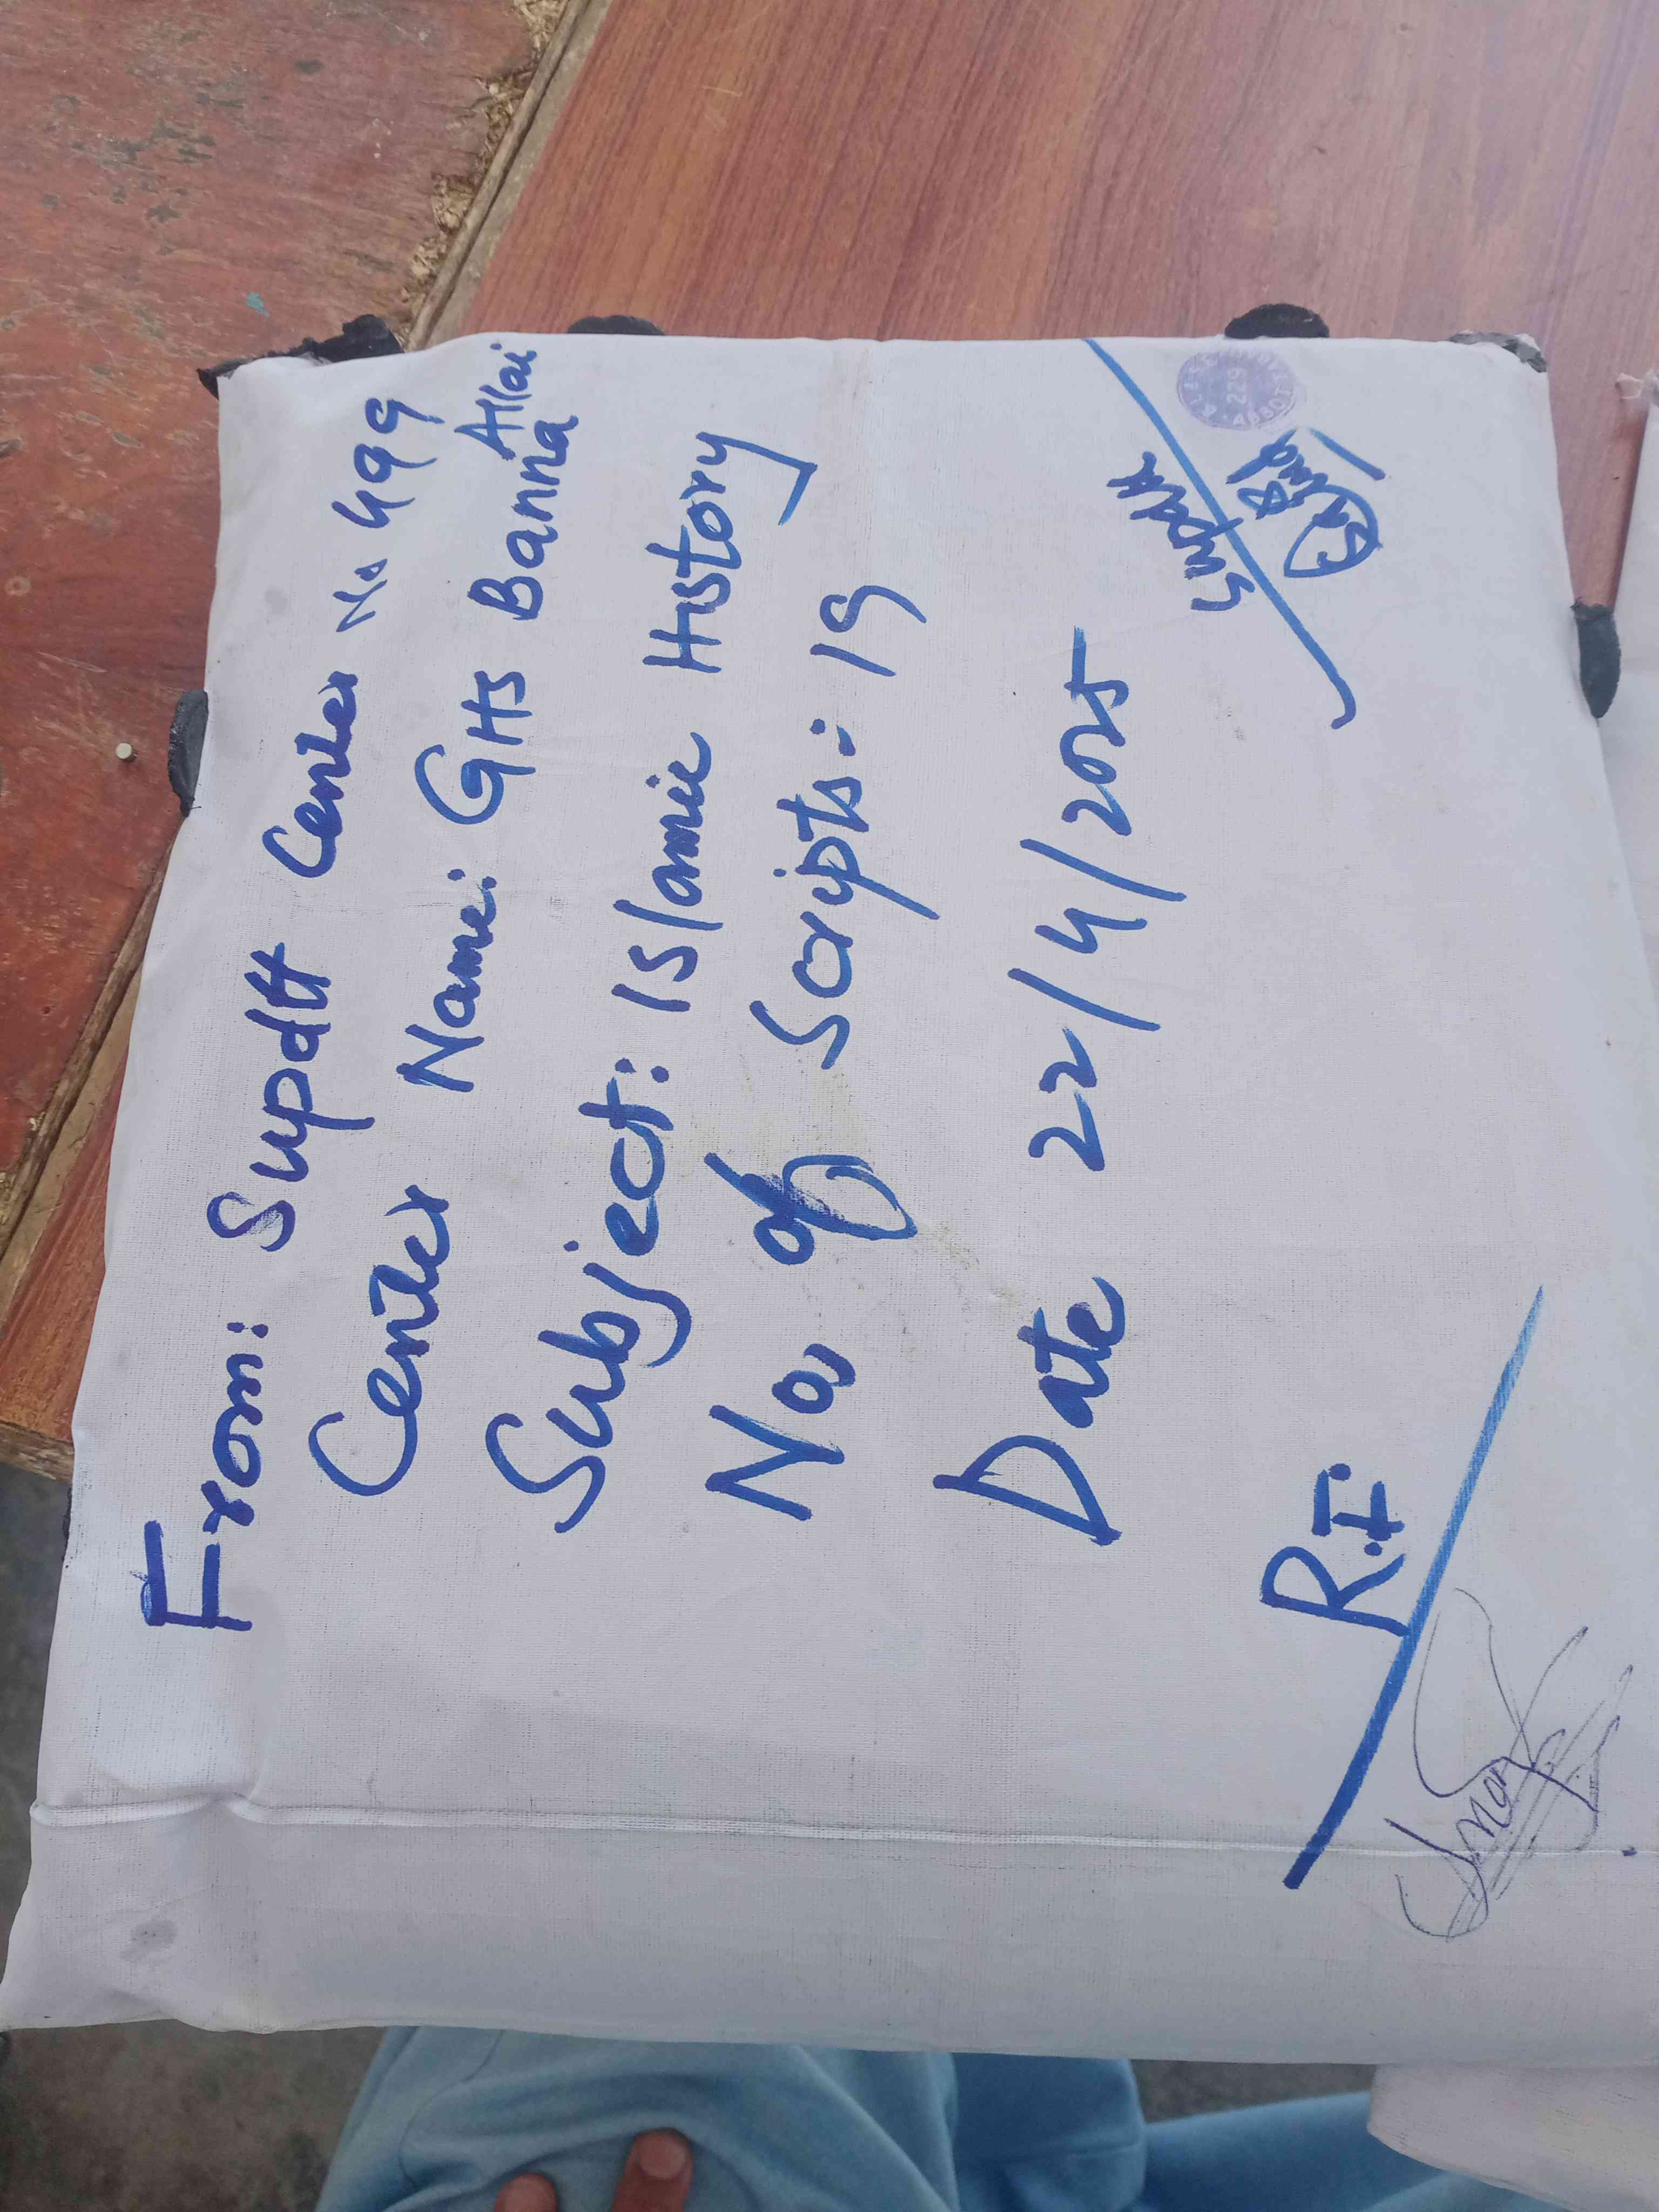 From: Supdtt Center No 499
Center Name: GHS Banna Allai
Subject: Islamic History
No of Scripts: 19
Date 22/4/2025
Supdtt
229
R.I